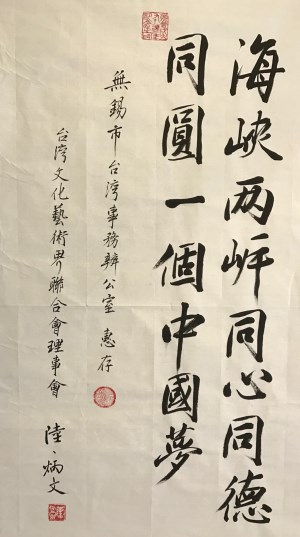 海峽两岍同心同德
同圓一個中國夢
無錫市台湾事務辦公室 惠存
台湾文化藝術界聯合會理事會
陸、炳文